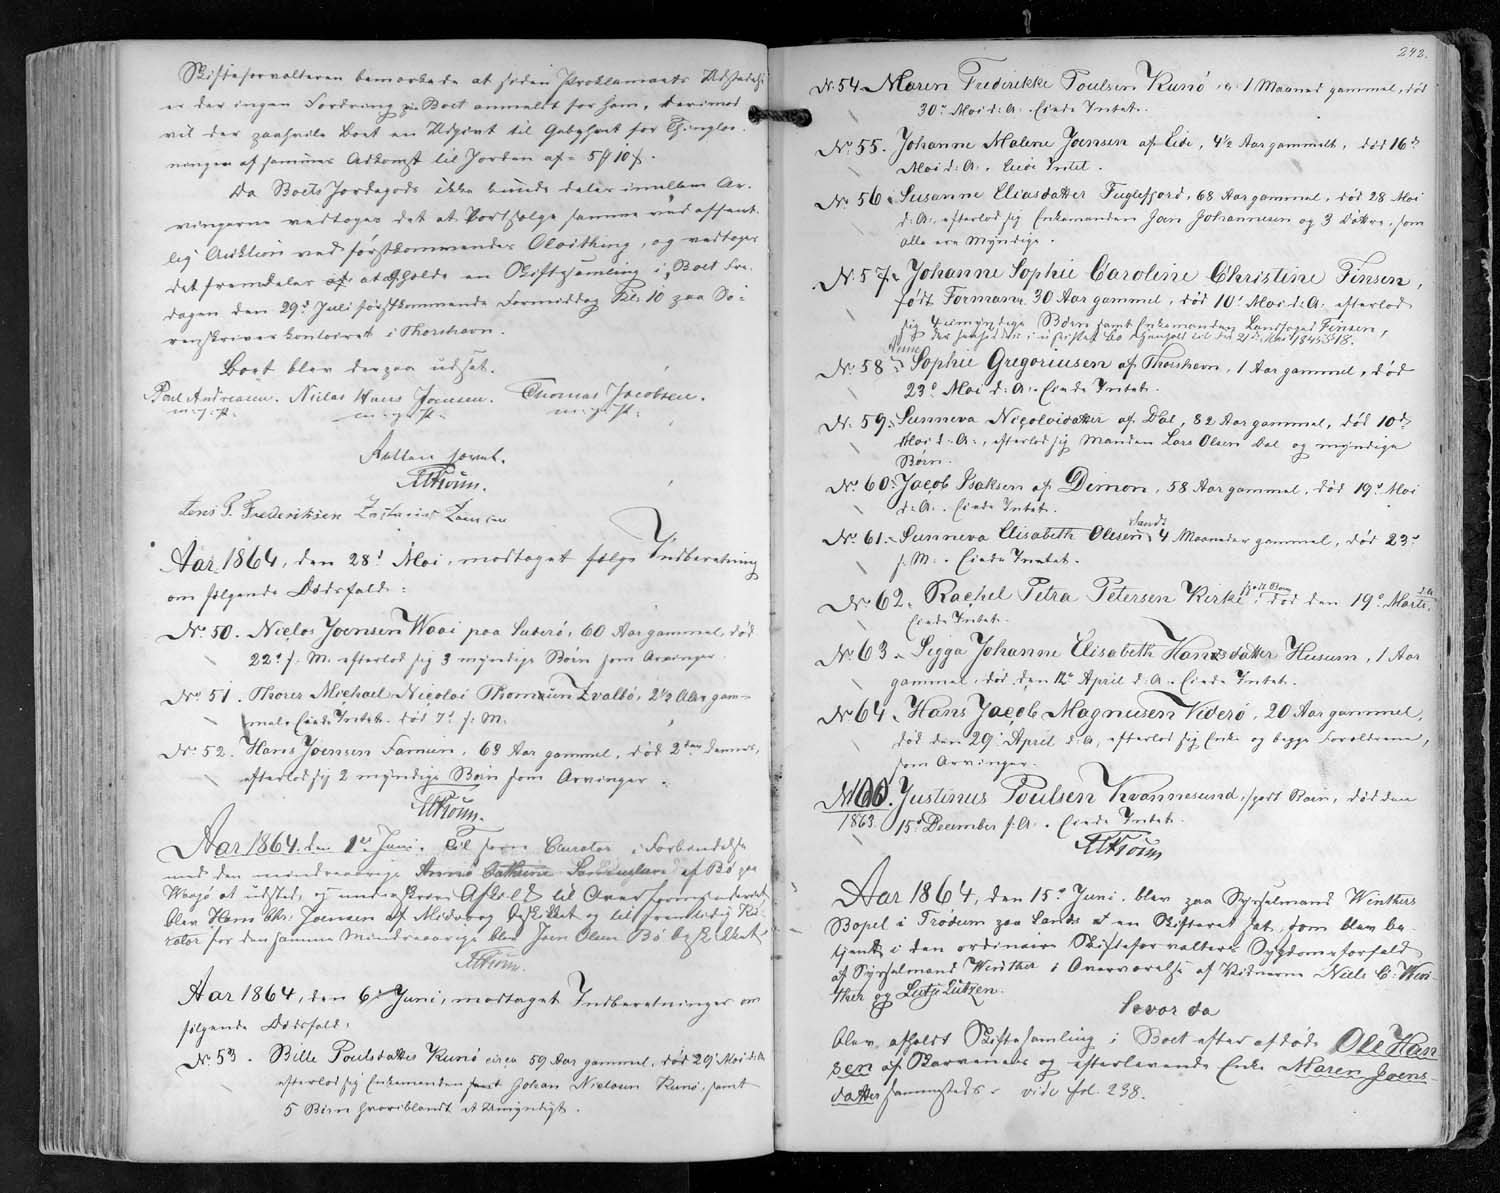 Skifteforvalteren bemærkede at siden Proklamaets Udstedelse
er der ingen Fordring paa Boet anmeldt for ham, derimod
vil der paahvile Boet en Udgivt til Gebyhret for Thinglæs-
ningen af sammes Adkomst til Jorden af = 5 10 s.
Da Boets Jordegods ikke kunde deles imellem Ar-
vingerne vedtoges det at bortsælge samme ved offent-
lig Auktion ved førstkommende Olaithing, og vedtoges
det fremdeles at afholde en Skiftesamling i Boet Fre-
dagen den 29d Juli førstkommende Formiddag Kl. 10 paa So-
renskriverkontoiret i Thorshavn.
Boet blev derpaa udsat.
Poul Andreasen. Niclas Hans Joensen. Thomas Jacobsen.
m. f. P. m. f. P. m. f. P.
Retten hævet.
HChrom.
Jens P. Frederiksen Zacharias
Aar 1864, den 28d Mai, modtaget følge Indberetning
om følgende Dødsfald:
No 50. Niclas Joensen Waai paa Suderø, 60 Aar gammel, død
22d f. M. efterlod sig 3 myndige Børn som Arvinger
No 51. Thorer Michael Nicolai Thomsen Qvalbø, 2½ Aar gam-
mel. Eiede Intet. død 7d f. M.
No 52. Hans Joensen Famien, 69 Aar gammel, død 2den dennes,
efterlod sig 2 myndige Børn som Arvinger.
Aar 1864, den 1ste Juni. Til som Curator i Forbindelse
med den mindreaarige Anna Cathrine af Bø paa
Waagø at udstede og underskrive Afkald til Overformynderiet
blev Hans Chr: Joensen af Midvaag beskikket og til fremtidig Ku-
rator for den samme Mindreaarige blev Joen Olsen Bø beskikket
Aar 1864, den 6d Juni, modtaget Indberetninger om
følgende Dødsfald:
No 53. Bille Poulsdatter Kunø circa 59 Aar gammel, død 29d Mai d. A.
efterlod sig Enkemanden Johan Niclasen Kunø, samt
5 Børn hvoriblandt et Umyndigt.
242.
No 54 Maren Fredirikke Poulsen Kunø, 1 Maaned gammel, død
30d Mai d: A: Eiede Intet.
No 55. Johanne Malene Joensen af Eide, 4½ Aar gammelt, død 16d
Mai d: A:. Eiede Intet.
No 56. Susanne Eliasdatter Fuglefjord, 68 Aar gammel, død 28 Mai
d: A:, efterlod sig Enkemanden Jan Johannesen og 3 Døttre, som
alle ere Myndige.
No 57. Johanne Sophie Caroline Christine Finsen,
født Formann, 30 Aar gammel, død 10d Mai d: A: efterlod
sig 4 umyndige Børn samt Enkemanden Landfoged Finsen,
der hensidder i uskiftet Bo ifølge 21de Mai 1845 § 18.
Anne
No 58. Sophie Gregoriusen af Thorshavn, 1 Aar gammel, død
23d Mai d: A:. Eiede Intet.
No 59. Sunneva Nicolaidatter af Dal, 82 Aar gammel, død 10d
Mai d: A:, efterlod sig Manden Lars Olsen Dal og myndige
Børn.
No 60. Jacob Isaksen af Dimon, 58 Aar gammel, død 19d Mai
d: A:. Eiede Intet.
Sands
No 61. Sunneva Elisabeth Olesen, 4 Maaneder gammel, død 23d
f. M.. Eiede Intet.
No 62. Rachel Petra Petersen Kirke, spædt Barn, død den 19d Marts d. A.
Eiede Intet.
No 63. Sigga Johanne Elisabeth Hansdatter Husum, 1 Aar
gammel, død den 12te April d: A.. Eiede Intet.
No 64. Hans Jacob Magnusen Viderø, 20 Aar gammel,
død den 29d April d: A, efterlod sig Enke og begge Forældrene,
som Arvinger.
No 100. Justinus Poulsen Kvannesund, spædt Barn, død den
1863. 15d December f: A:. Eiede Intet.
HChrom
Aar 1864, den 15d Juni, blev paa Sysselmand Winthers
Bopæl i Trødum paa Sandø en Skifteret sat, som blev be-
tjent i den ordinaire Skifteforvalters Sygdomsforfald
af Sysselmand Winther i Overværelse af Vidnerne Niels C: Win-
ther og Lutje Lützen.
Hvor da
blev afholdt Skiftesamling i Boet efter afdøde Ole Han-
sen af Skarvenæs og efterlevende Enke Maren Joens-
datter sammesteds - vide fol. 238.